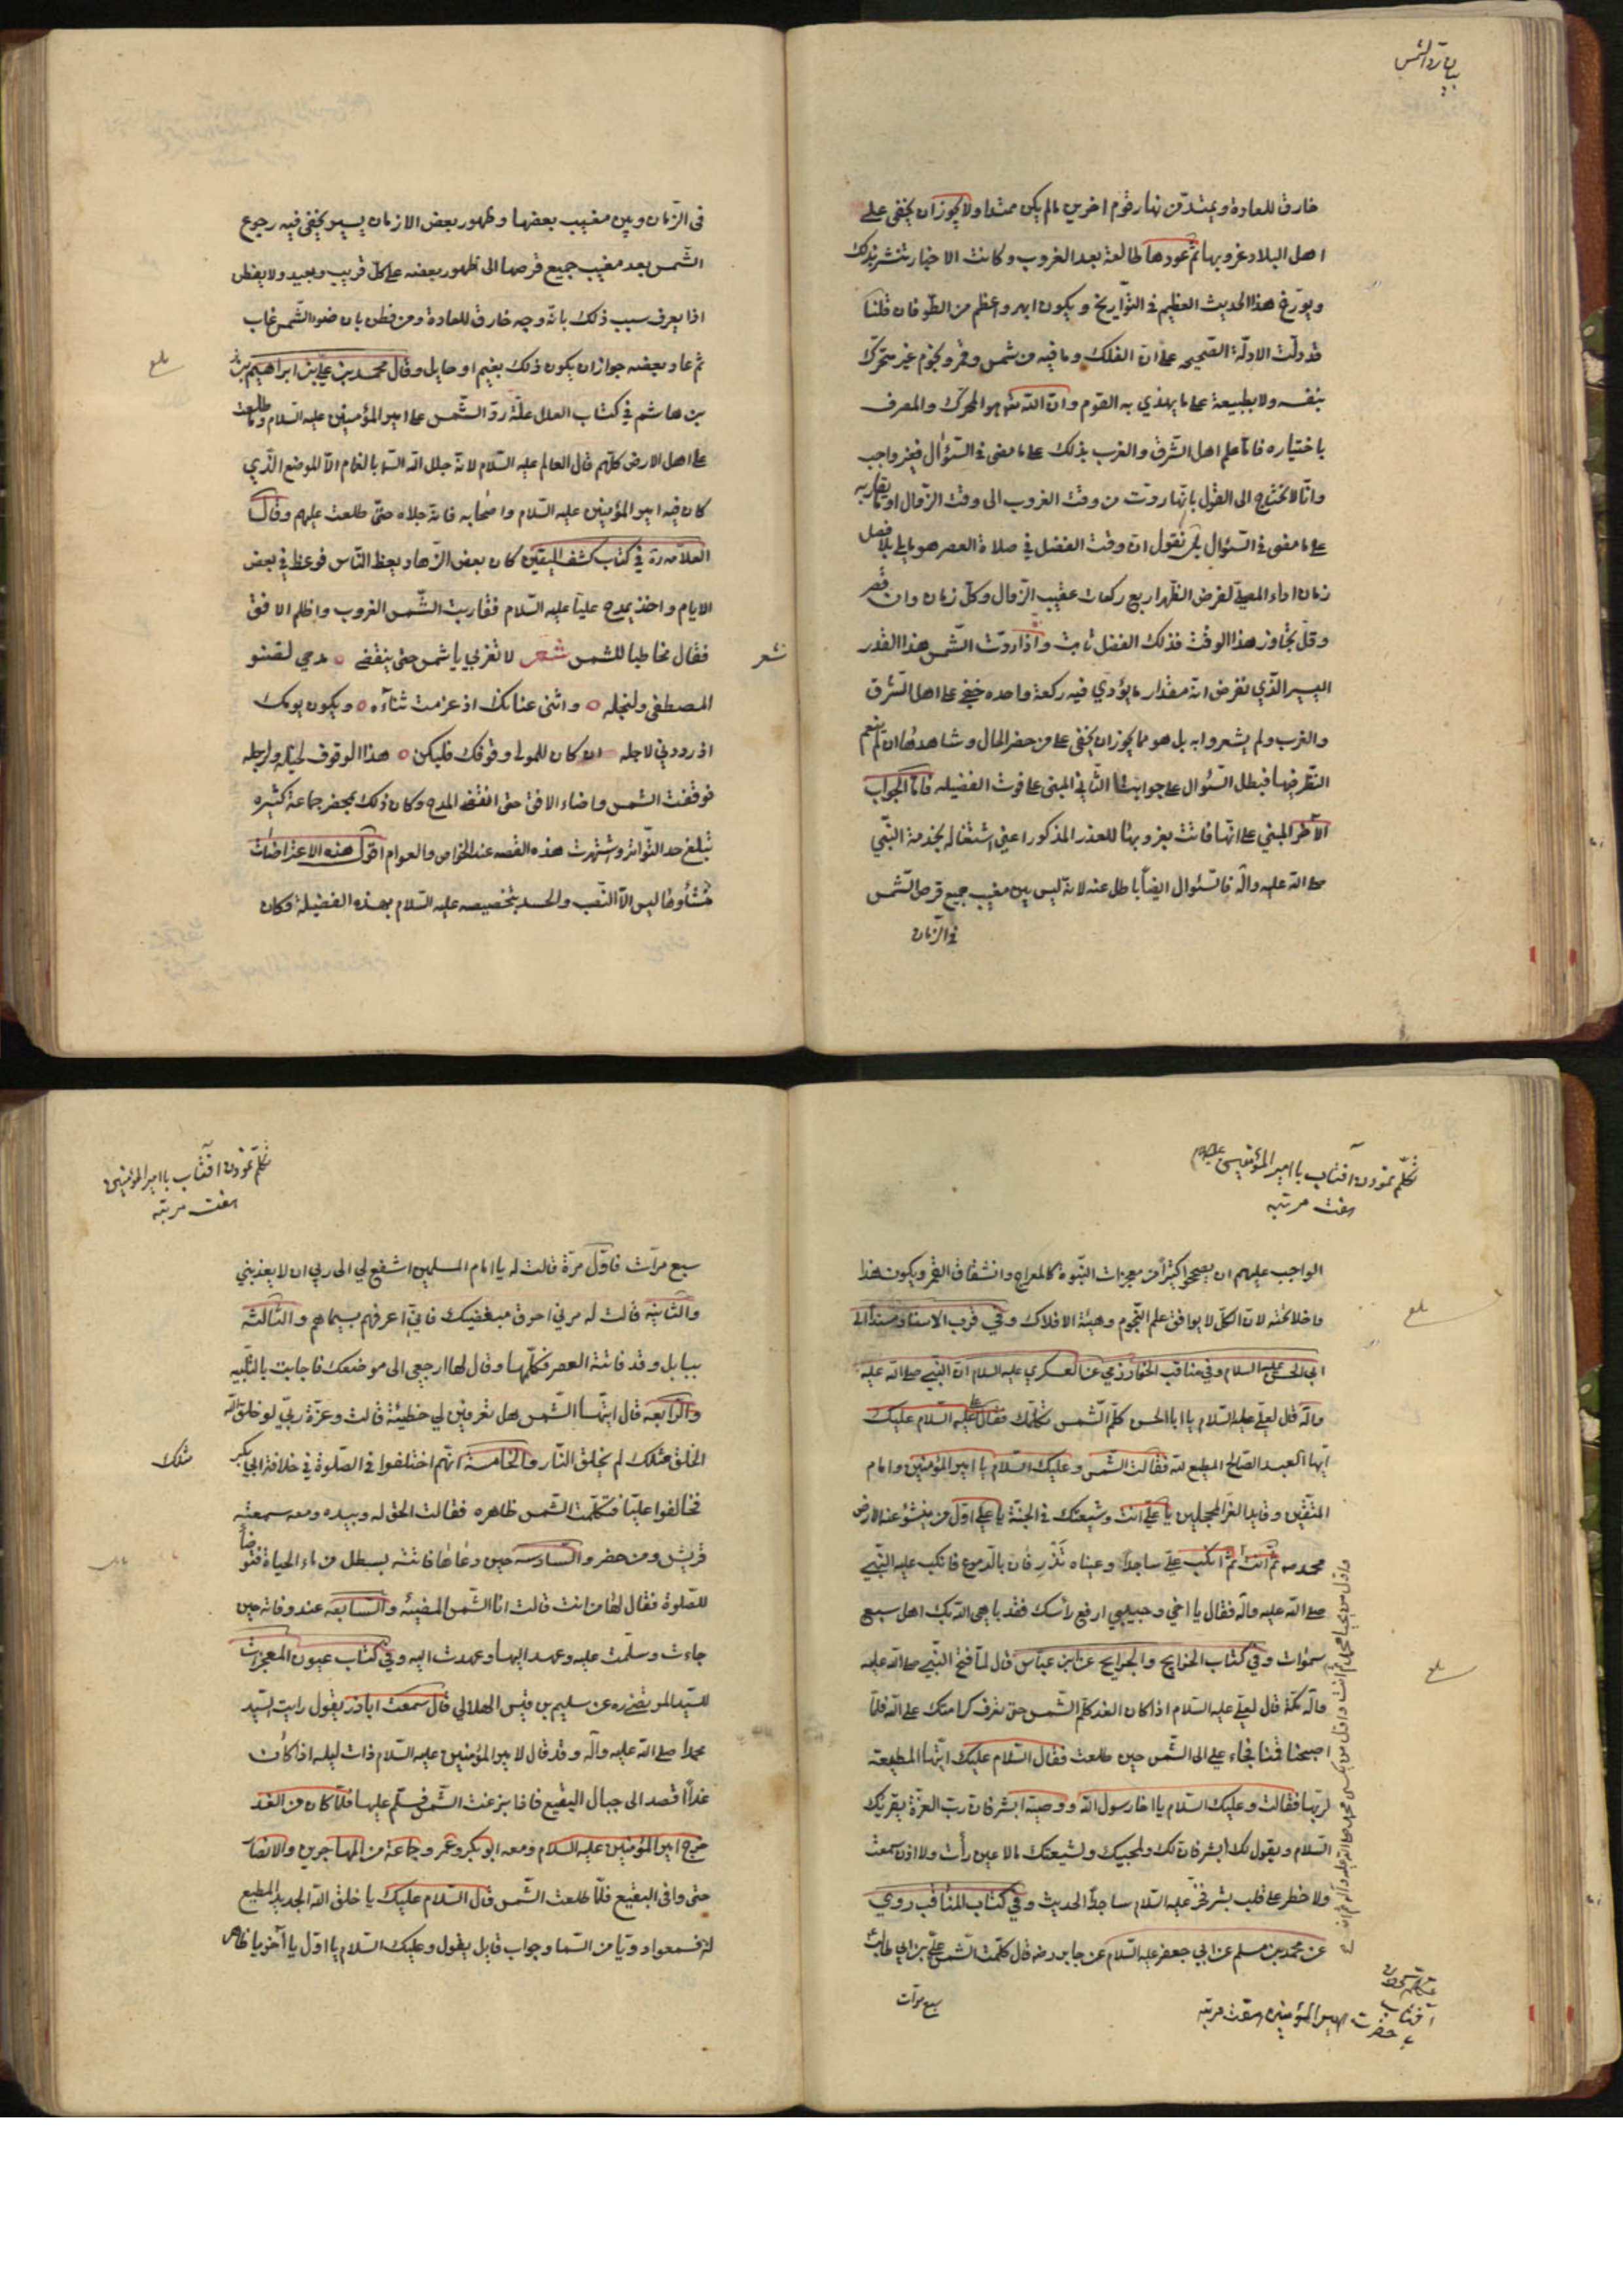 بيان رد الشمس
خارق للعادة ويمتد من نهار قوم اخرين ما لم يكن ممتدا ولا يجوز ان يخفى على
اهل البلاد غروبها ثم عودها طالعة بعد الغروب وكانت الاخبار تنتشر بذلك
ويورّخ هذا الحديث العظيم في التواريخ ويكون ابهر واعظم من الطوفان قلنا
قد دلّت الادلّة الصحيحه على انّ الفلك وما فيه من شمس وقمر ونجوم غير متحرّك
بنفسه ولا بطبيعة على ما يهذي به القوم وانّ الله تعه هو المحرّك والمصرف
باختياره فامّا علم اهل الشّرق والغرب بذلك على ما مضى في السّؤال فغير واجب
وانّا لا نحتاج الى القول بانّها ردّت من وقت الغروب الى وقت الزّوال او ما يقاربه
على ما مضى في السّؤال بل نقول انّ وقت الفضل في صلاة العصر هو ما يلي بلا فصل
زمان اداء المصلّي لفرض الظّهر اربع ركعات عقيب الزّوال وكلّ زمان وان قصر
وقلّ يجاوز هذا الوقت فذلك الفضل ثابت واذا ردّت الشّمس هذا القدر
اليسير الّذي نفرض انّه مقدار ما يؤدّي فيه ركعة واحده خفي على اهل الشّرق
والغرب ولم يشعروا به بل هو مما يجوز ان يخفى على من حضر الحال وشاهدها ان لم ينعم
النّظر فيها فبطل السّؤال على جوابنا الثّاني المبنى على فوت الفضيله فامّا الجواب
الآخر المبني على انّها فاتت بغروبها للعذر المذكور اعني اشتغاله بخدمة النّبي
صلى الله عليه وآله فالسّؤال ايضاً باطل عنه لانّه ليس بين مغيب جميع قرص الشّمس
في الزّمان
فى الزّمان وبين مغيب بعضها وظهور بعض الا زمان يسير يخفى فيه رجوع
الشّمس بعد مغيب جميع قرصها الى ظهور بعضه على كلّ قريب وبعيد ولا يفطن
اذا يعرف سبب ذلك بانّه وجه خارق للعادة ومن فطن بان ضوء الشّمس غاب
ثم عاد بعضه جواز ان يكون ذلك بغيم او حايل وقال محمد بن علي بن ابراهيم
بن هاشم في كتاب العلل علّة ردّ الشّمس على امير المؤمنين عليه السّلام وما طلعت
على اهل الارض كلّهم قال العالم عليه السّلام لانّه جلل الله السّما بالغام الّا الموضع الّذي
كان فيه امير المؤمنين عليه السّلام واصحابه فانه جلاه حتّى طلعت عليهم وقال
العلامه ره في كتاب كشف اليقين كان بعض الزّهاد يعظ النّاس فوعظ في بعض
الايام واخذ يمدح عليّا عليه السّلام فقاربت الشّمس الغروب واظلم الافق
فقال مخاطبا للشمس شعر لا تغربي يا شمس حتى ينقضي ه مدحي لصنو
المصطفى ولنجله ه واثنى عنانك اذ عزمت ثناءه ه ويكون يومك
اذ رددتي لاجله ان كان للمولى وقوفك فليكن ه هذا الوقوف لخيله ولرجله
فوقفت الشمس واضاء الافق حتى انقضى المدح وكان ذلك بمحضر جماعة كثيره
تبلغ حد التّواتر واشتهرت هذه القصه عند الخواص والعوام اقول هذه الاعتراضات
منشأوها ليس الّا النّصب والحسد بتخصيصه عليه السّلام بهذه الفضيلة وكان
بلغ
شعر
تكلّم نمودن آفتاب با امير المؤمنين عليه السلام
هفت مرتبه
الواجب عليهم ان يصححوا كثيرا من معجزات النّبوة كالمعراج وانشقاق القمر ويكون هذا
داخلا تحته لانّ الكلّ لا يوافق علم النّجوم وهيئة الافلاك وفي قرب الاسناد مسنداً الى
ابي الحسن عليه السلام وفي مناقب الخوارزمي عن العسكري عليه السلام انّ النّبي صلى الله عليه
وآله قال لعلي عليه السّلام يا ابا الحسن كلّم الشّمس تكلّمك فقال علي عليه السّلام عليك
ايّها العبد الصّالح المطيع لله فقالت الشّمس وعليك السّلام يا امير المؤمنين وامام
المتّقين وقايد الغرّ المحجلين يا علي انت وشيعتك في الجنّة يا علي اوّل من ينشق عنه الارض
محمد صه ثم انت ثم انكب علي ساجداً وعيناه تذرفان بالدّموع فانكب عليه النّبي
صلى الله عليه وآله فقال يا اخي وحبيبي ارفع رأسك فقد باهى الله بك اهل سبع
سموات وفي كتاب الخرايج والجرايح عن ابن عبّاس قال لمّا فتح النّبي صلى الله عليه
وآله مكّة قال لعلي عليه السّلام اذا كان الغد كلّم الشّمس حتى تعرف كرامتك على الله فلمّا
اصبحنا قمنا فجاء علي الى الشّمس حين طلعت فقال السّلام عليك ايّتها المطيعة
لربّها فقالت وعليك السّلام يا اخا رسول الله ووصيّه ابشر فان ربّ العزّة يقرئك
السّلام ويقول لك ابشر فان لك ولمحبيك ولشيعتك ما لا عين رأت ولا اذن سمعت
ولا خطر على قلب بشر فخرّ عليه السّلام ساجداً الحديث وفي كتاب المناقب روي
عن محمد بن مسلم عن ابي جعفر عليه السّلام عن جابر رضه قال كلّمت الشّمس علي بن ابي طالب
سبع مرات
بلغ
بلغ
آفتاب
با حضرت امير المؤمنين هفت مرتبه
تكلّم نمودن آفتاب با امير المؤمنين
هفت مرتبه
سبع مرات فاوّل مرّة قالت له يا امام المسلمين اشفع لي الى ربي ان لا يعذبني
والثّانية قالت له مرني احرق مبغضيك فانّي اعرفهم بسيماهم والثّالثة
ببابل وقد فاتته العصر فكلّمها وقال لها ارجعي الى موضعك فاجابت بالتّلبيه
والرّابعه قال ايّتها الشّمس هل تعرفين لي خطيئة قالت وعزّة ربّي لو خلق الله
الخلق مثلك لم يخلق النّار والخامسة انّهم اختلفوا في الصّلوة في خلافة ابي بكر
فخالفوا عليّا فتكلّمت الشّمس ظاهره فقالت الحق له وبيده ومعه سمعته
قريش ومن حضر والسّادسه حين دعاها فاتته بسطل من ماء الحياة فتوضأ
للصّلوة فقال لها من انت قالت انا الشّمس المضيئه والسّابعه عند وفاته حين
جاءت وسلّمت عليه وعهد اليها وعهدت اليه وفي كتاب عيون المعجزات
للسّيّد المرتضى ره عن سليم بن قيس الهلالي قال سمعت اباذر يقول رايت السّيّد
محمدا صلى الله عليه وآله وقد قال لامير المؤمنين عليه السّلام ذات ليله اذا كان
غداً اقصد الى جبال البقيع فاذا بزغت الشّمس فسلّم عليها فلمّا كان من الغد
خرج امير المؤمنين عليه السلام ومعه ابوبكر وعمر وجماعة من المهاجرين والانصار
حتى وافى البقيع فلمّا طلعت الشّمس قال السّلام عليك يا خلق الله الجديد المطيع
له فسمعوا دويّا من السّما وجواب قايل يقول وعليك السّلام يا اوّل يا آخر يا ظاهر
مثلك